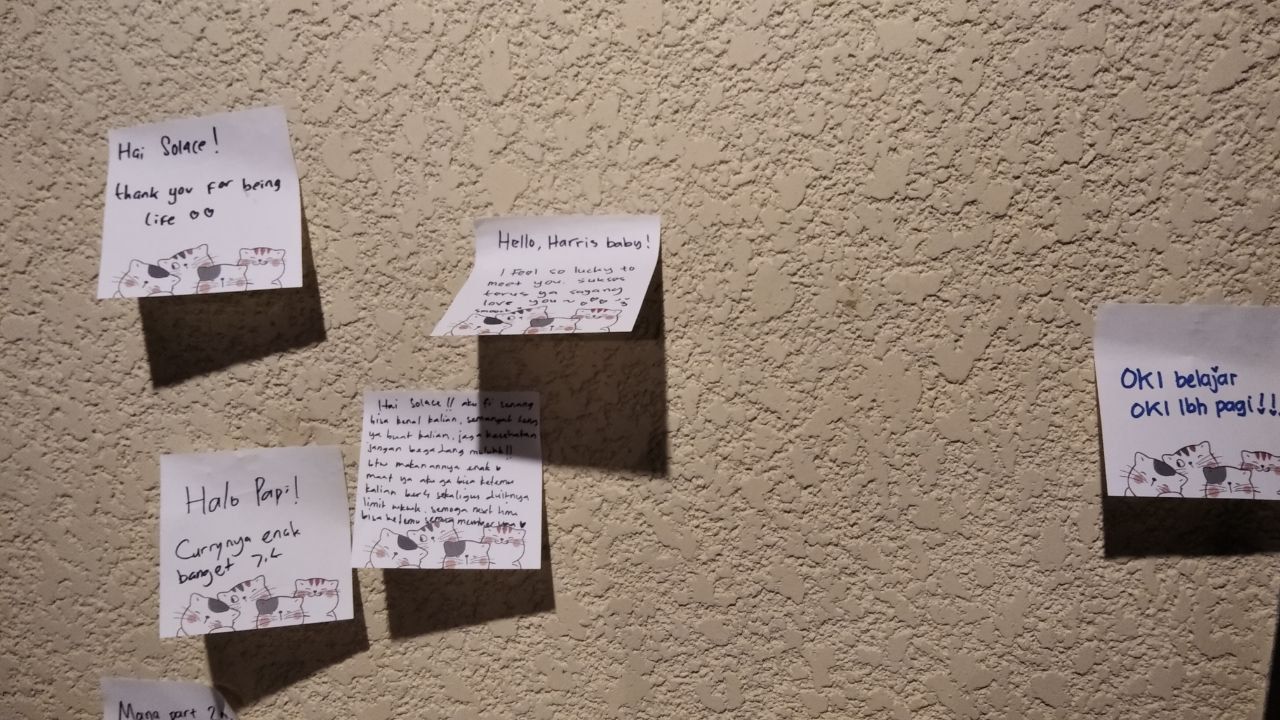 Hai Solace!
thank you for being
life
Hello, Harris baby!
I feel so lucky to
meet you. sukses
terus ya sayang
love you ~
Hai Solace!! aku fi senang
bisa kenal kalian, semangat terus
ya buat kalian, jaga kesehatan
jangan begadang mulu!!
btw makanannya enak
maaf ya aku ga bisa ketemu
kalian ber4 sekaligus duitnya
limit wkwk, semoga next time
bisa ketemu semua member nya
Halo Papi!
Currynya enak
banget >.<
OKI belajar
OKI lbh pagi!!
Mana part 2